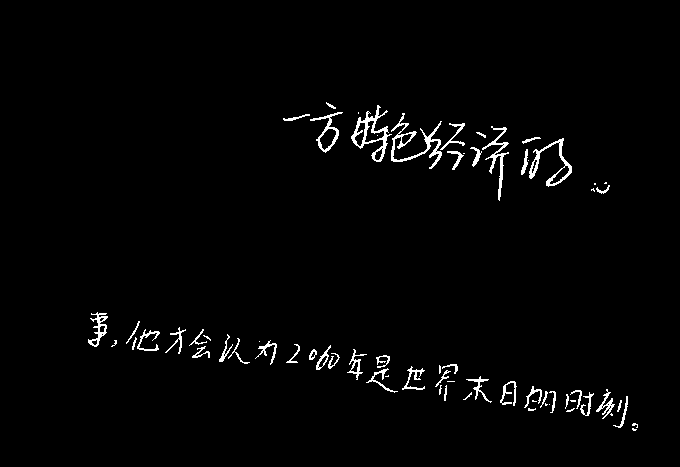 一方特色经济的。
事,他才会认为2060年是世界末日的时刻。